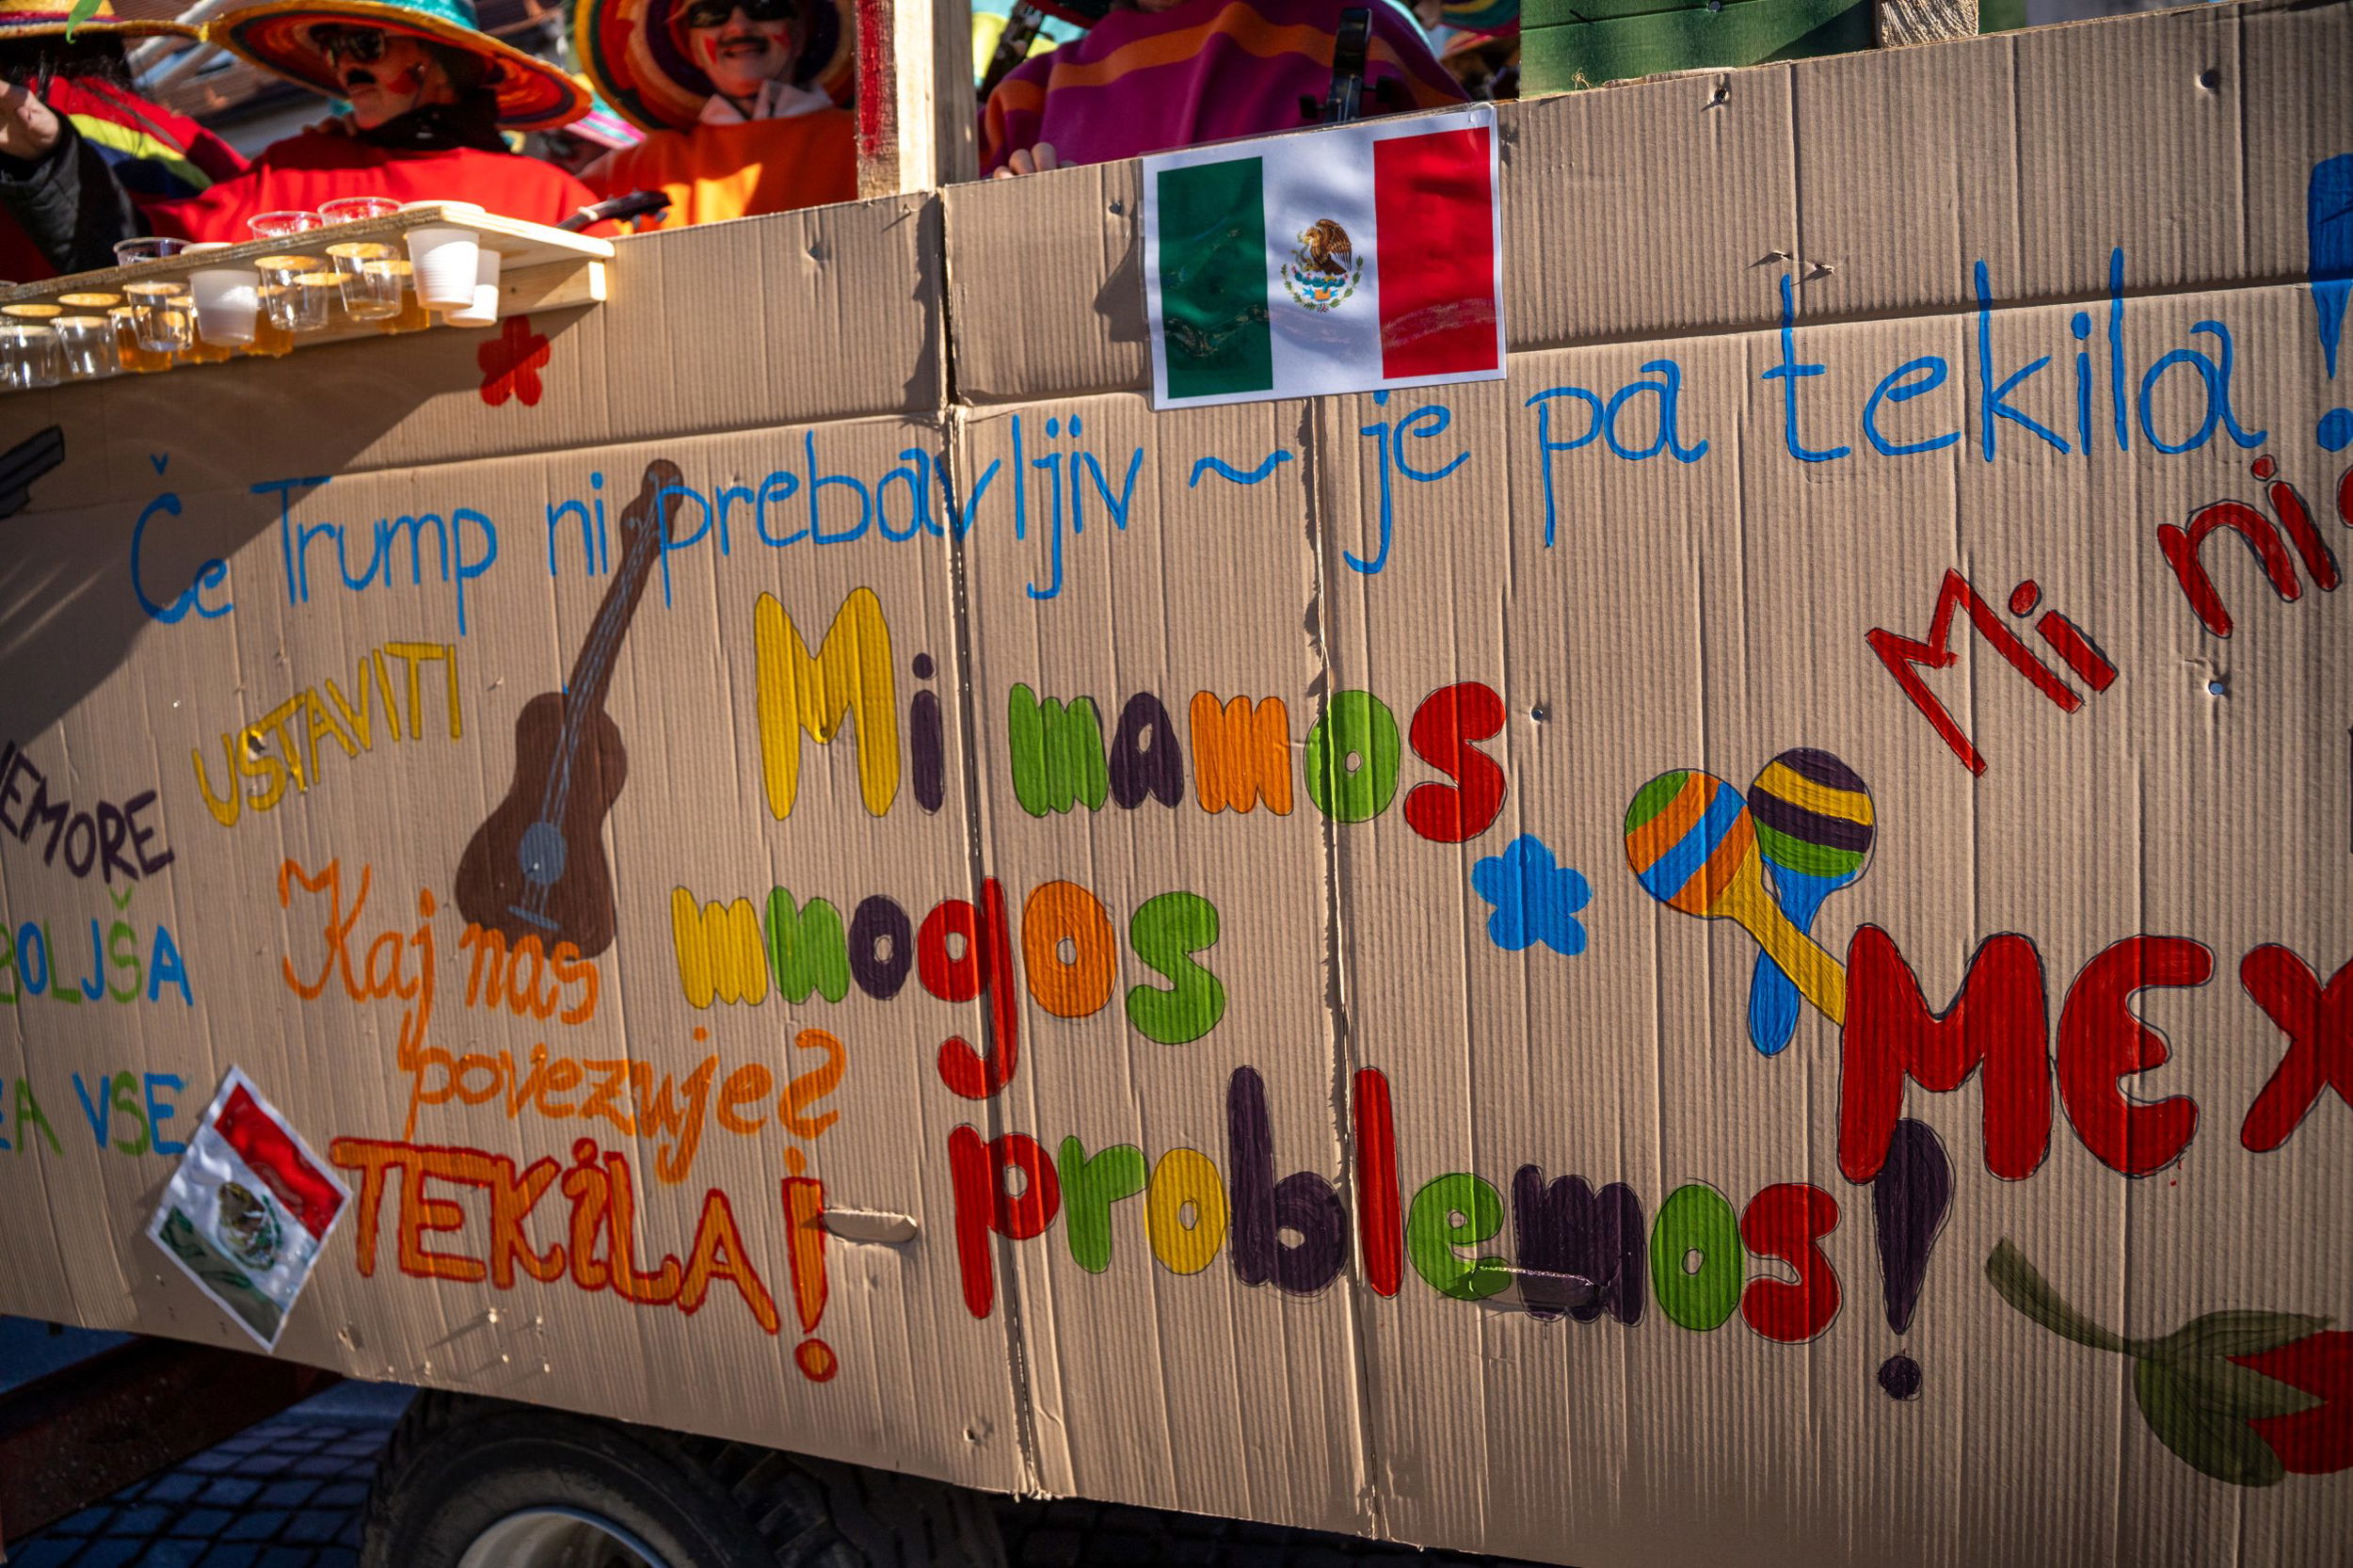 Če Trump ni prebavljiv ~ je pa tekila!
USTAVITI
BOLJŠA
ZA VSE
Kaj nas
povezuje?
TEKiLA!
Mi mamos
mnogos
problemos!
Mi